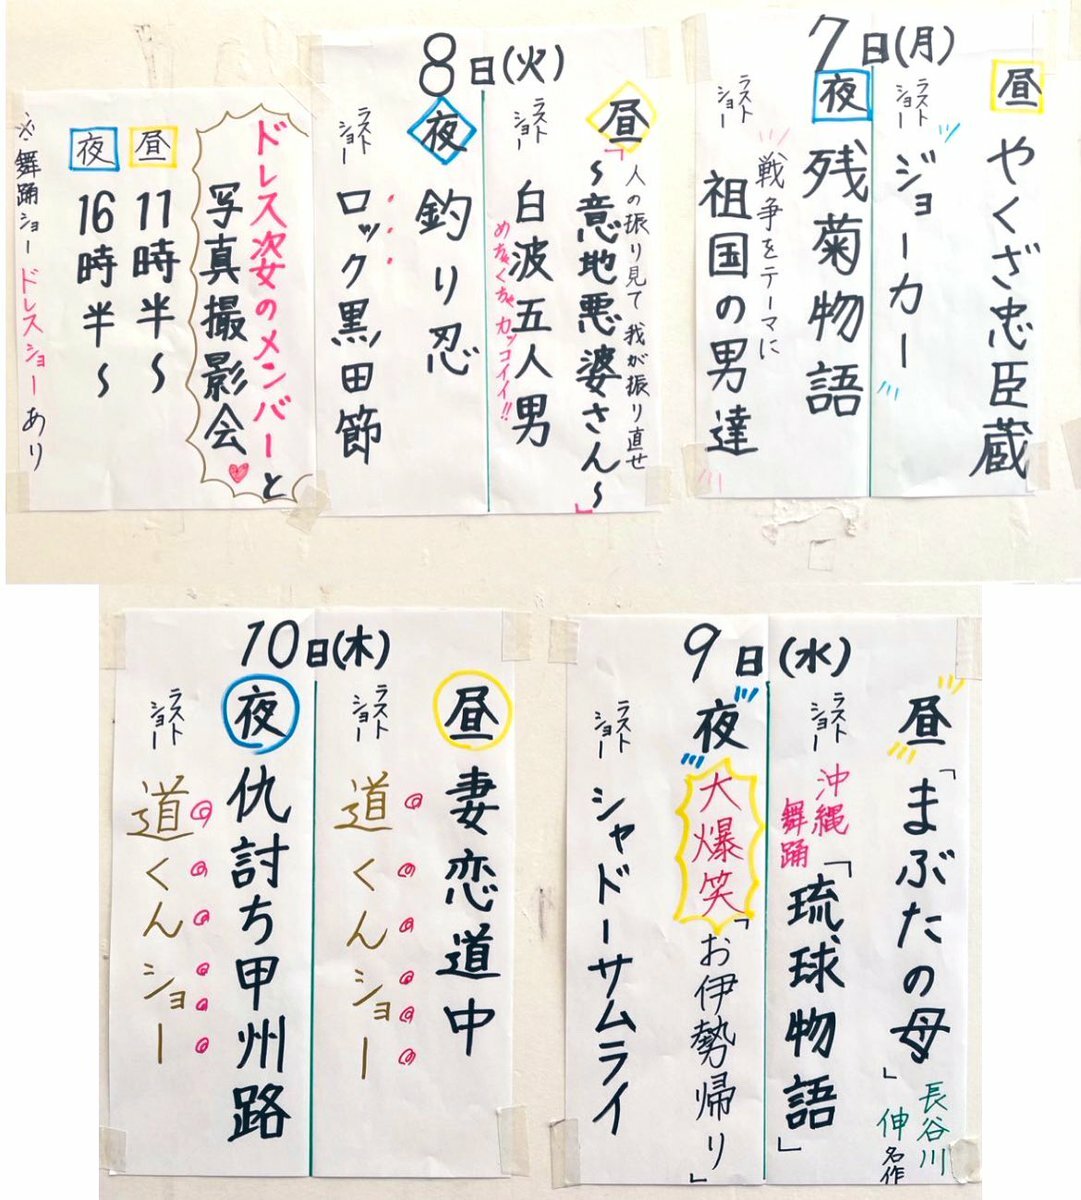 7日(月)
昼
やくざ忠臣蔵
ラスト
ショー
ジョーカー
夜
残菊物語
ラスト
ショー
戦争をテーマに
祖国の男達
8日(火)
昼
「人の振り見て我が振り直せ
〜意地悪婆さん〜」
ラスト
ショー
白波五人男
めちゃくちゃカッコイイ!!
夜
釣り忍
ラスト
ショー
ロック黒田節
ドレス次女のメンバーと
写真撮影会
昼
11時半〜
夜
16時半〜
※舞踊ショードレスショーあり
9日(水)
昼
「まぶたの母」
長谷川
伸名作
ラスト
ショー
沖縄
舞踊
「琉球物語」
夜
大爆笑
「お伊勢帰り」
ラスト
ショー
シャドーサムライ
10日(木)
昼
妻恋道中
ラスト
ショー
道くんショー
夜
仇討ち甲州路
ラスト
ショー
道くんショー